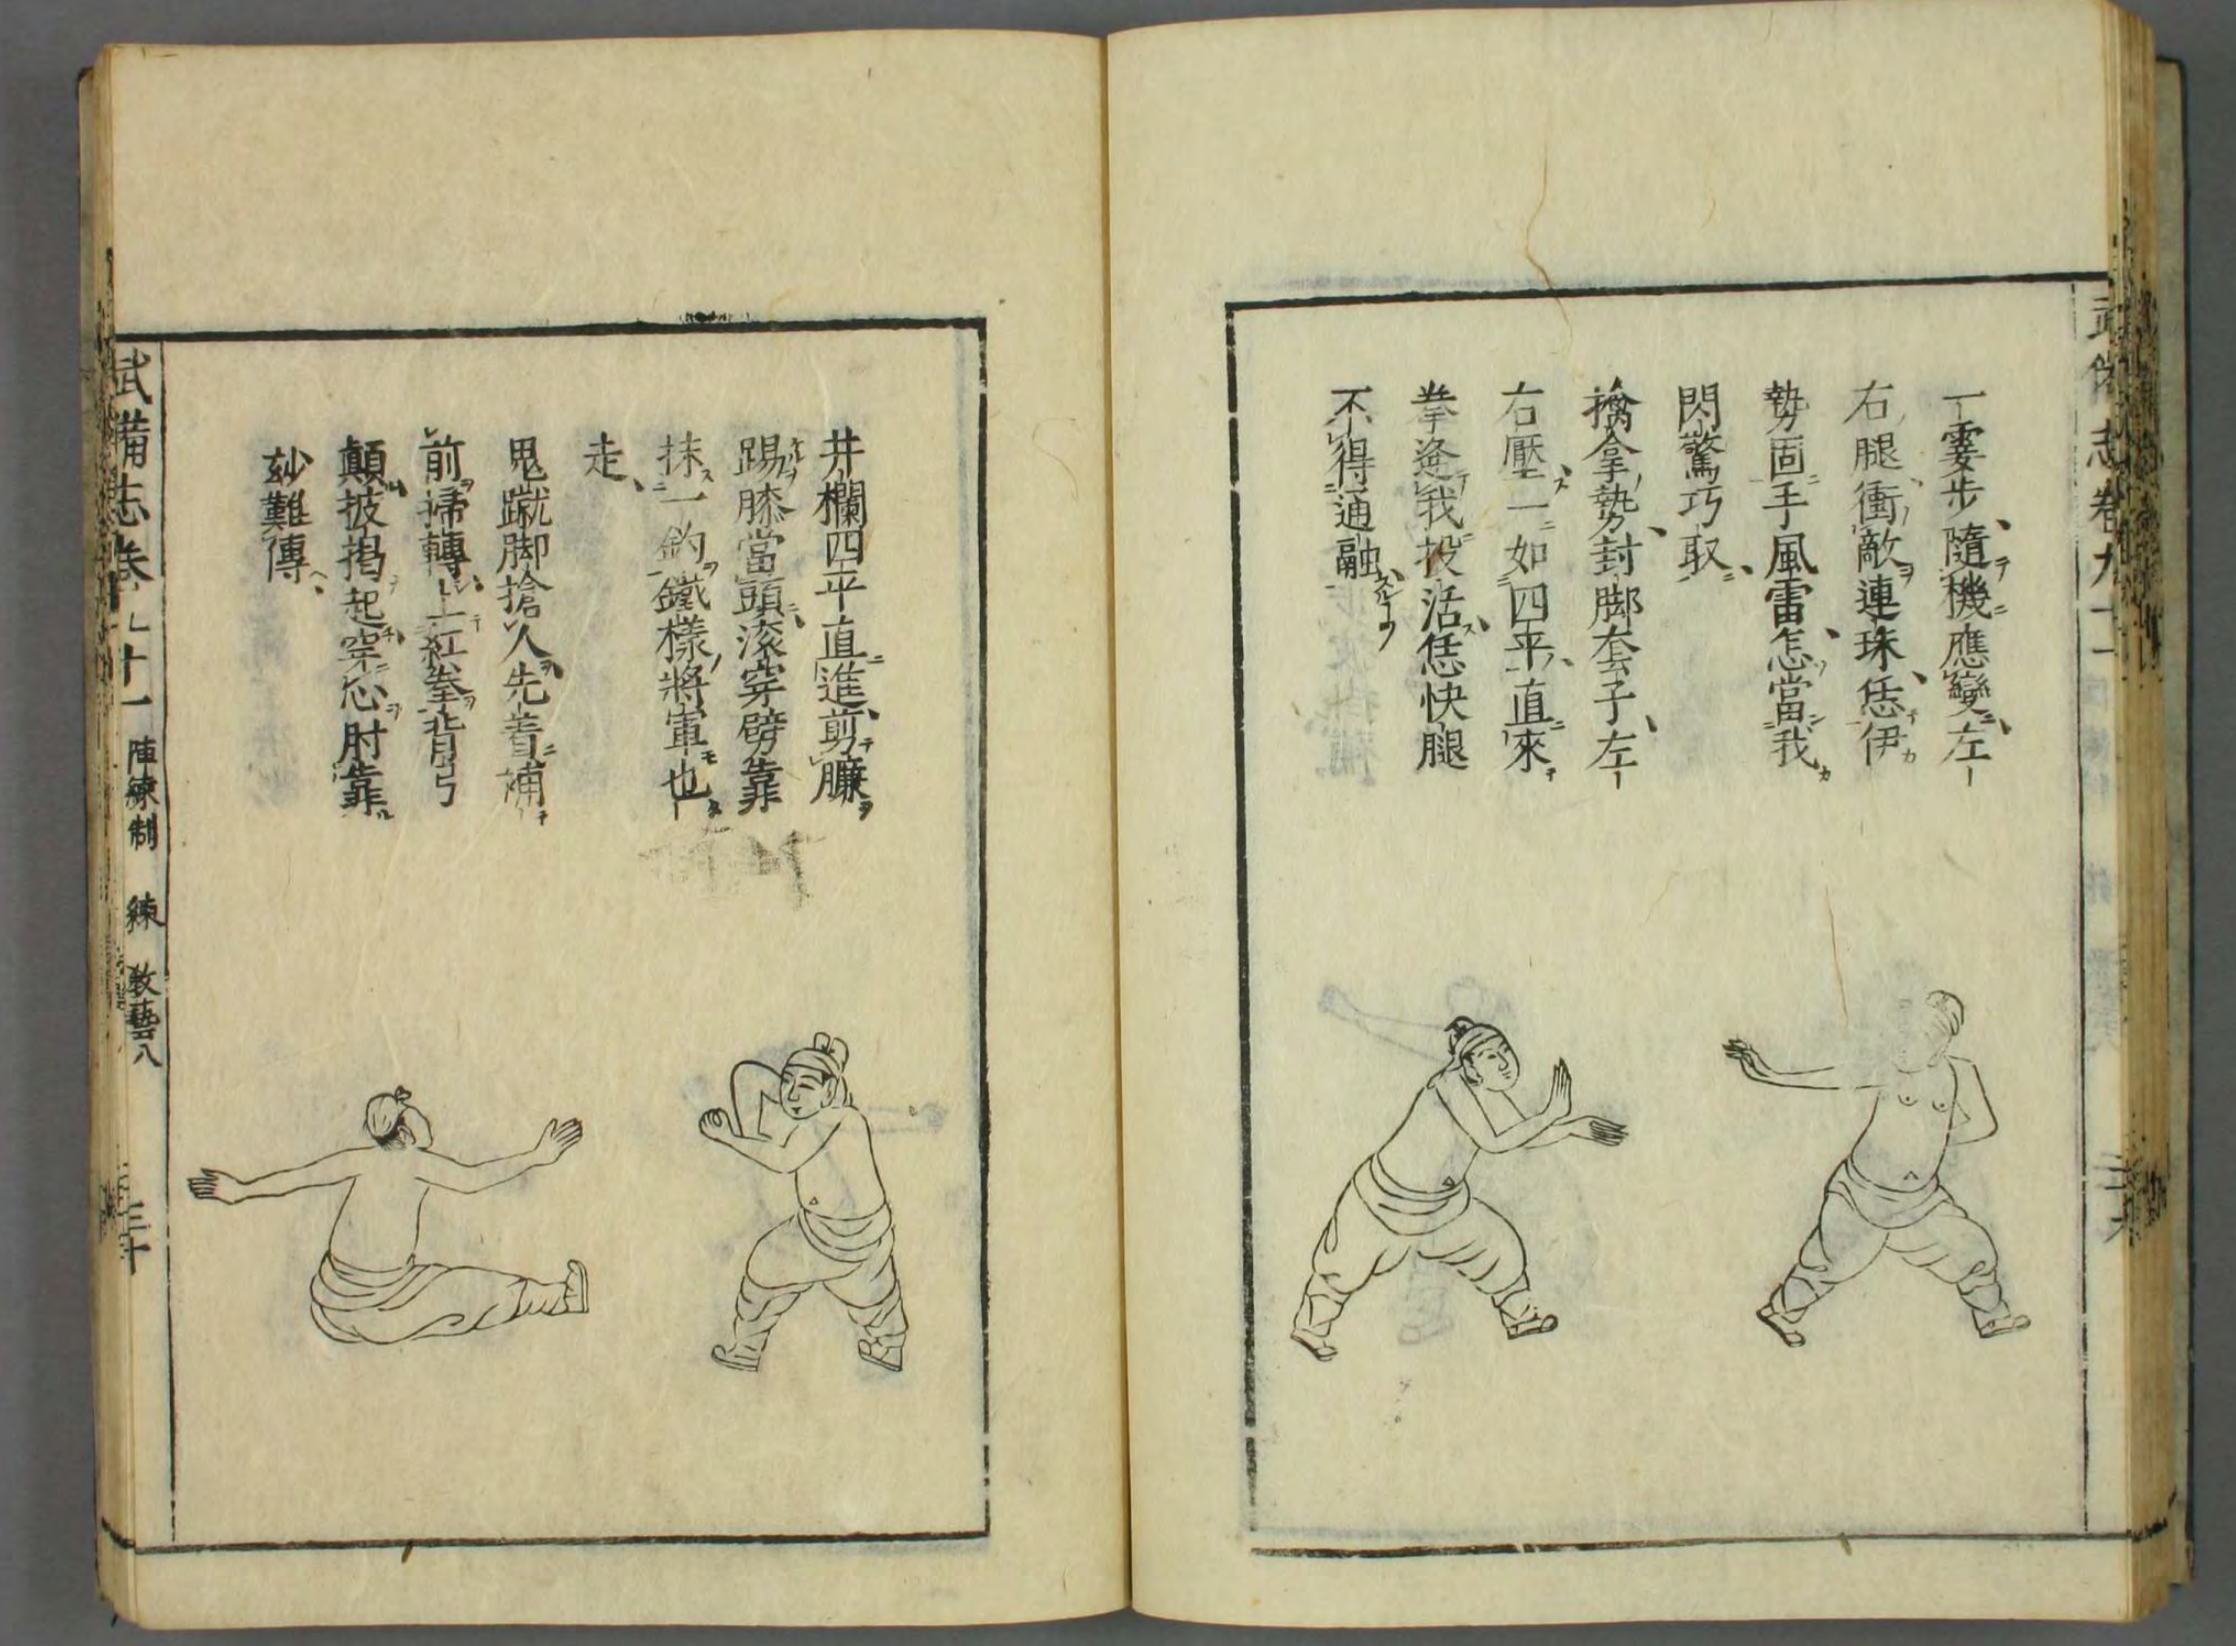 一霎步隨機應變左
右腿衝敵連珠恁伊
勢固手風雷怎當我
閃驚巧取
擒拿勢封脚套子左
右壓一如四平直來
拳逄我投活恁快腿
不得通融
井欄四平直進剪臁
踢膝當頭滚穿劈靠
抹一鈎鐵樣將軍也
走
鬼蹴脚搶人先着補
前掃轉上紅拳背弓
顛披揭起穿心肘靠
玅難傳
武備志卷九十一 陣練制 練 教藝八 三十